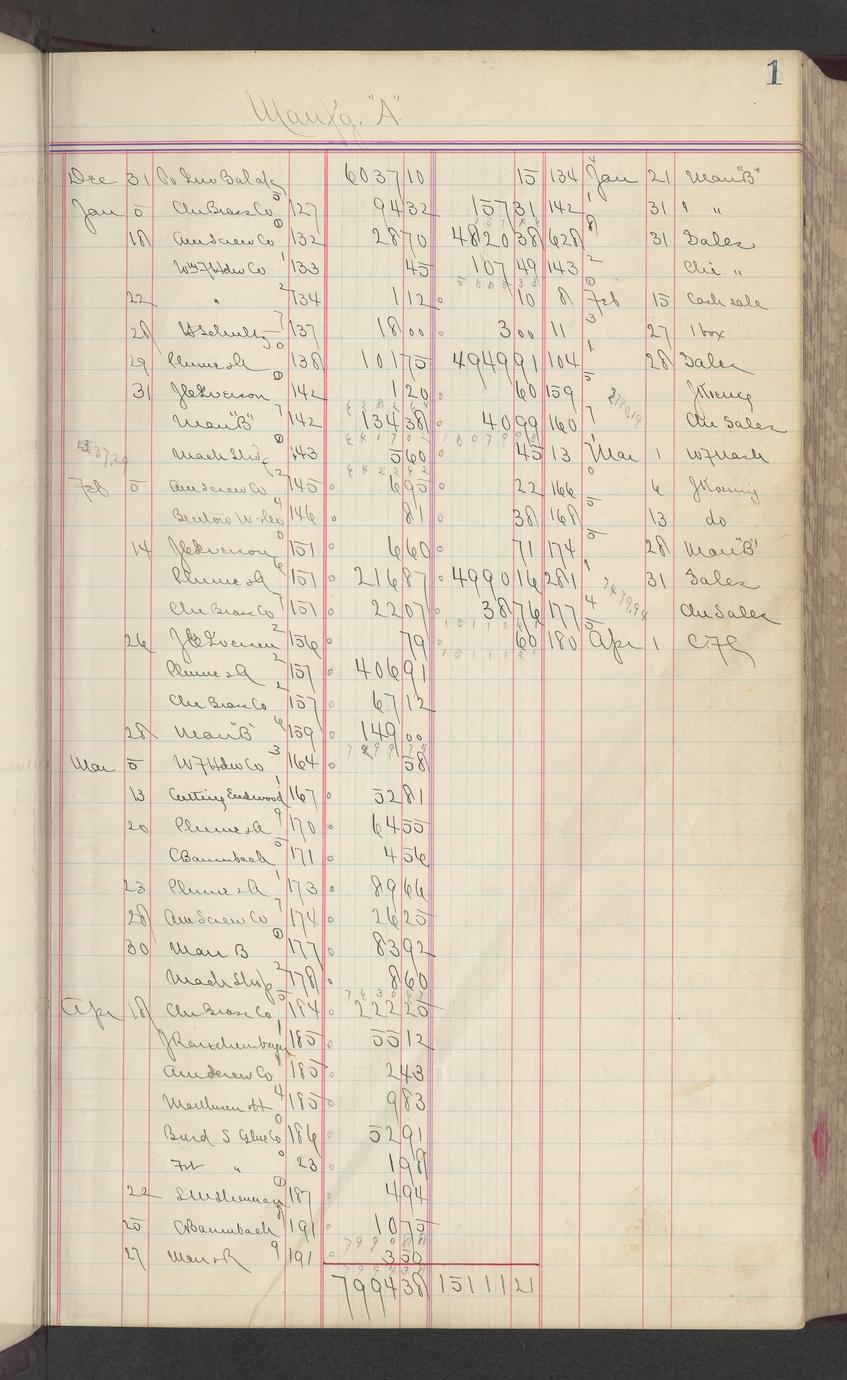 1
Manf'g. "A"
Dec 31 To Inv Bal 6037 10 15 134 Jan 21 Man "B"
Jan 5 Chi Brass Co 127 94 32 157 31 142 31 " "
18 Am Screw Co 132 28 70 4820 38 628 31 Sales
W F Hdw Co 133 45 107 49 143 Chi "
22 " 134 1 12 10 8 Feb 15 Cash sale
28 Schultz 137 18 00 3 00 11 27 1 box
29 Plume & A 138 101 75 4949 91 104 28 Sales
31 J E Iverson 142 1 20 60 159 J Koenig
Man "B" 142 134 38 40 99 160 Chi Sales
Mach Shop 143 5 60 45 13 Mar 1 W F Mach
Feb 5 Am Screw Co 145 6 95 22 166 6 J Koenig
146 81 38 168 13 do
14 J E Iverson 151 6 60 71 174 28 Man "B"
Plume & A 151 216 87 4990 16 281 31 Sales
Chi Brass Co 151 22 07 38 76 177 Chi Sales
26 J E Iverson 156 79 60 180 Apr 1
Plume & A 157 406 91
Chi Brass Co 157 67 12
28 Man "B" 159 149 00
Mar 5 W F Hdw Co 164 58
13 Cutting 167 52 81
20 Plume & A 170 64 55
C Baumbach 171 4 56
23 Plume & A 173 89 66
28 Am Screw Co 174 26 25
30 Man B 177 83 92
Mach Shop 178 8 60
Apr 18 Chi Brass Co 184 222 25
185 55 12
Am Screw Co 185 2 43
185 9 83
S Glue Co 186 52 91
Frt " 23 1 98
22 187 4 94
25 C Baumbach 191 10 75
27 Man 191 3 50
7994 38 15111 21